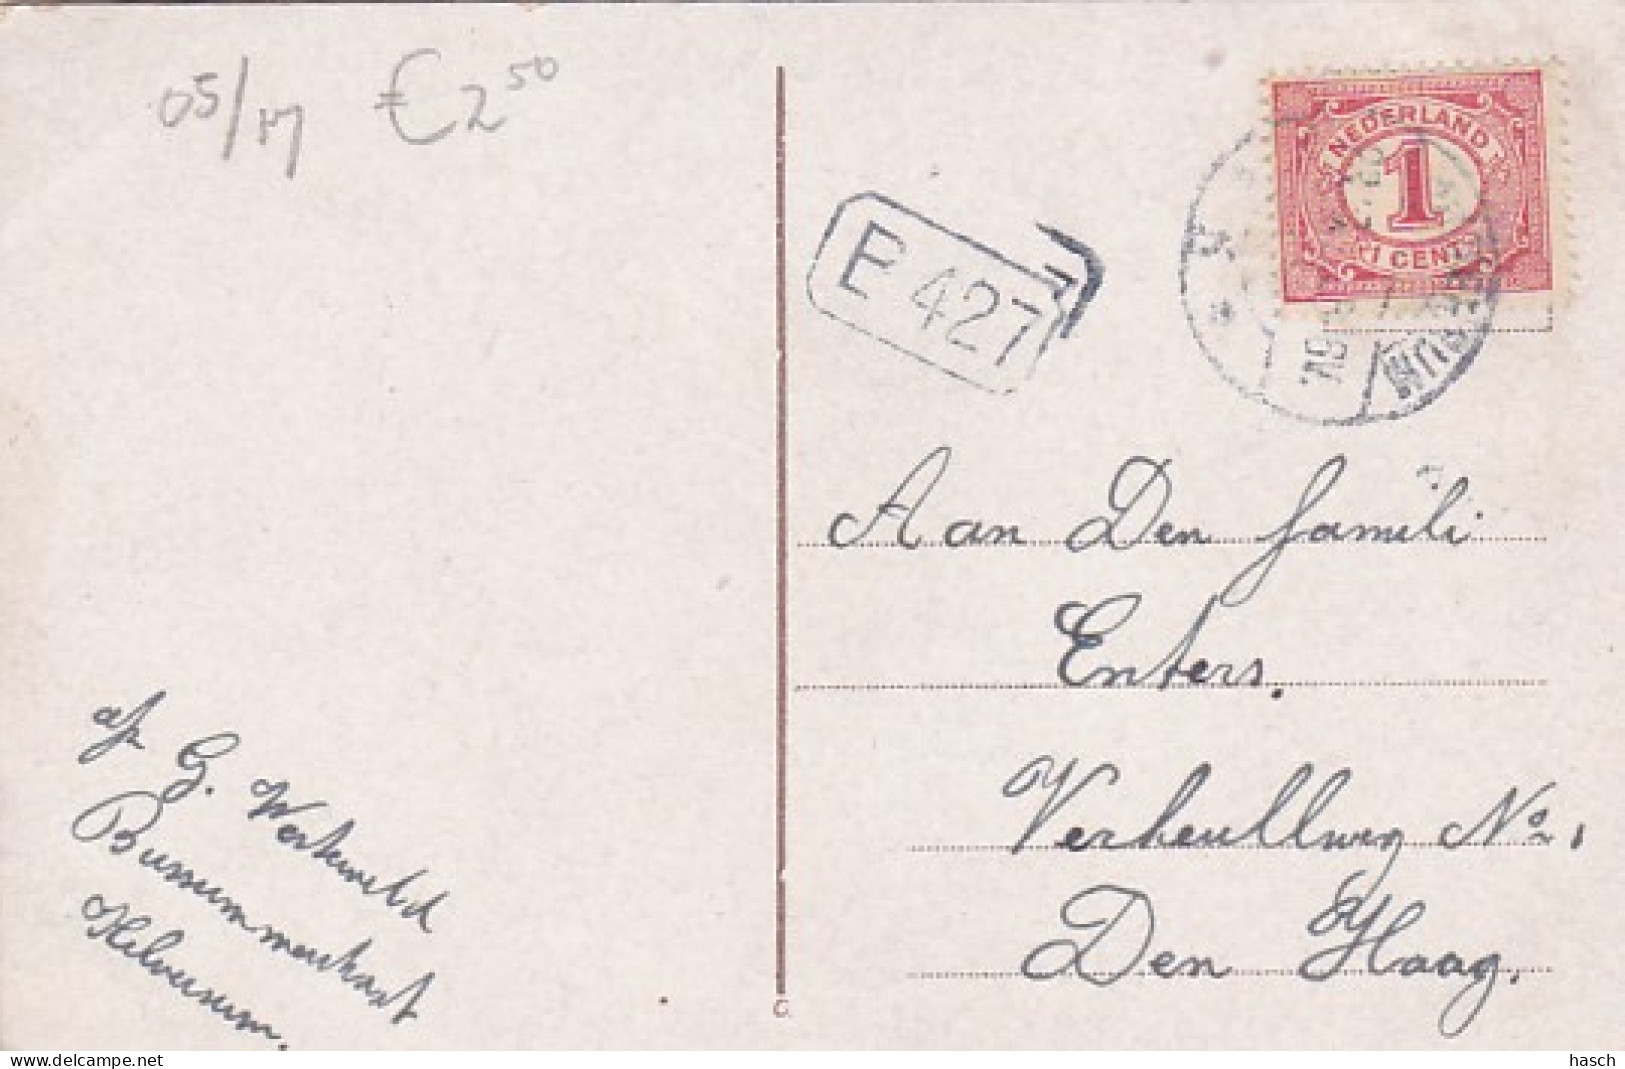 05/17 € 2 50
NEDERLAND
1
1 CENT
E 427
Aan Den Famili
Enters.
Verheullweg No 1
Den Haag.
afz G. Werkveld
Hilversum.
G
hasch